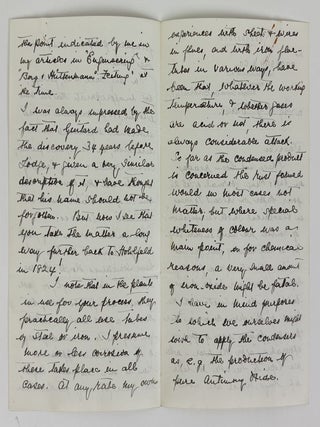 the point indicated by me in
my articles in "Engineering" &
Berg & Hüttenmann Zeitung at
the time.
I was always impressed by the
fact that Guitard had made
the discovery 34 years before
Lodge, & given a very similar
description of it, & have thought
that his name should not be
forgotten... But now I see that
you take the matter a long
way further back to Hohlfeld
in 1824.
I note that in the plants
in use for your process, they
practically all use tubes
of steel or iron. I presume
more or less corrosion of
these takes place in all
cases. At any rate my own
experiences with sheet & pipes
in flues, and with iron
in various ways, have
been that whatever the working
temperature, & whether gases
are acid or not, there is
always considerable attack.
So far as the condensed product
is concerned the rust formed
would in most cases not
matter but where special
whiteness of colour was a
main point, or for chemical
reasons, a very small amount
of iron oxide might be fatal.
I have in mind purposes
to which we ourselves might
wish to apply the condensers
as e.g. the production of
pure Antimony Oxide.